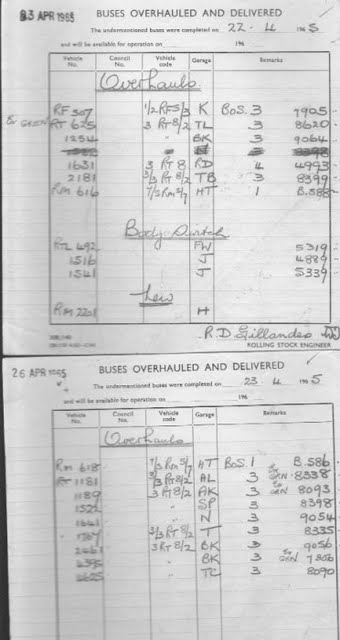 23 APR 1965 BUSES OVERHAULED AND DELIVERED
The undermentioned buses were completed on 22-4 1965
and will be available for operation on 196
Vehicle No. Council No. Vehicle code Garage Remarks
Overhauls
RF 507 1/2 RF5/3 K BoS. 3 7905
RT 625 3 RT 8/2 TL 3 8620
1254 " BK 3 9064
1631 3 RT 8 RD 4 4993
2181 3/3 RT 8/2 TB 3 8399
RM 616 7/5 RM 5/7 HT 1 B.588
Body Switch
RTL 492 FW 5319
1516 J 4889
1541 J 5339
New
RM 2201 H
R D Gillandes
ROLLING STOCK ENGINEER
26 APR 1965 BUSES OVERHAULED AND DELIVERED
The undermentioned buses were completed on 23-4 1965
and will be available for operation on 196
Vehicle No. Council No. Vehicle code Garage Remarks
Overhauls
RM 618 RM 5/7 HT BoS. 1 B.586
RT 1181 3/3 RT 8/2 AL 3 to GRN 8338
1189 3 RT 8/2 AK 3 to GRN 8093
1522 " SP 3 8398
1641 " N 3 9054
1767 3/3 RT 8/2 T 3 8335
2461 3 RT 8/2 BK 3 9056
4395 BK 3 to GRN
4625 " TC 3 8090